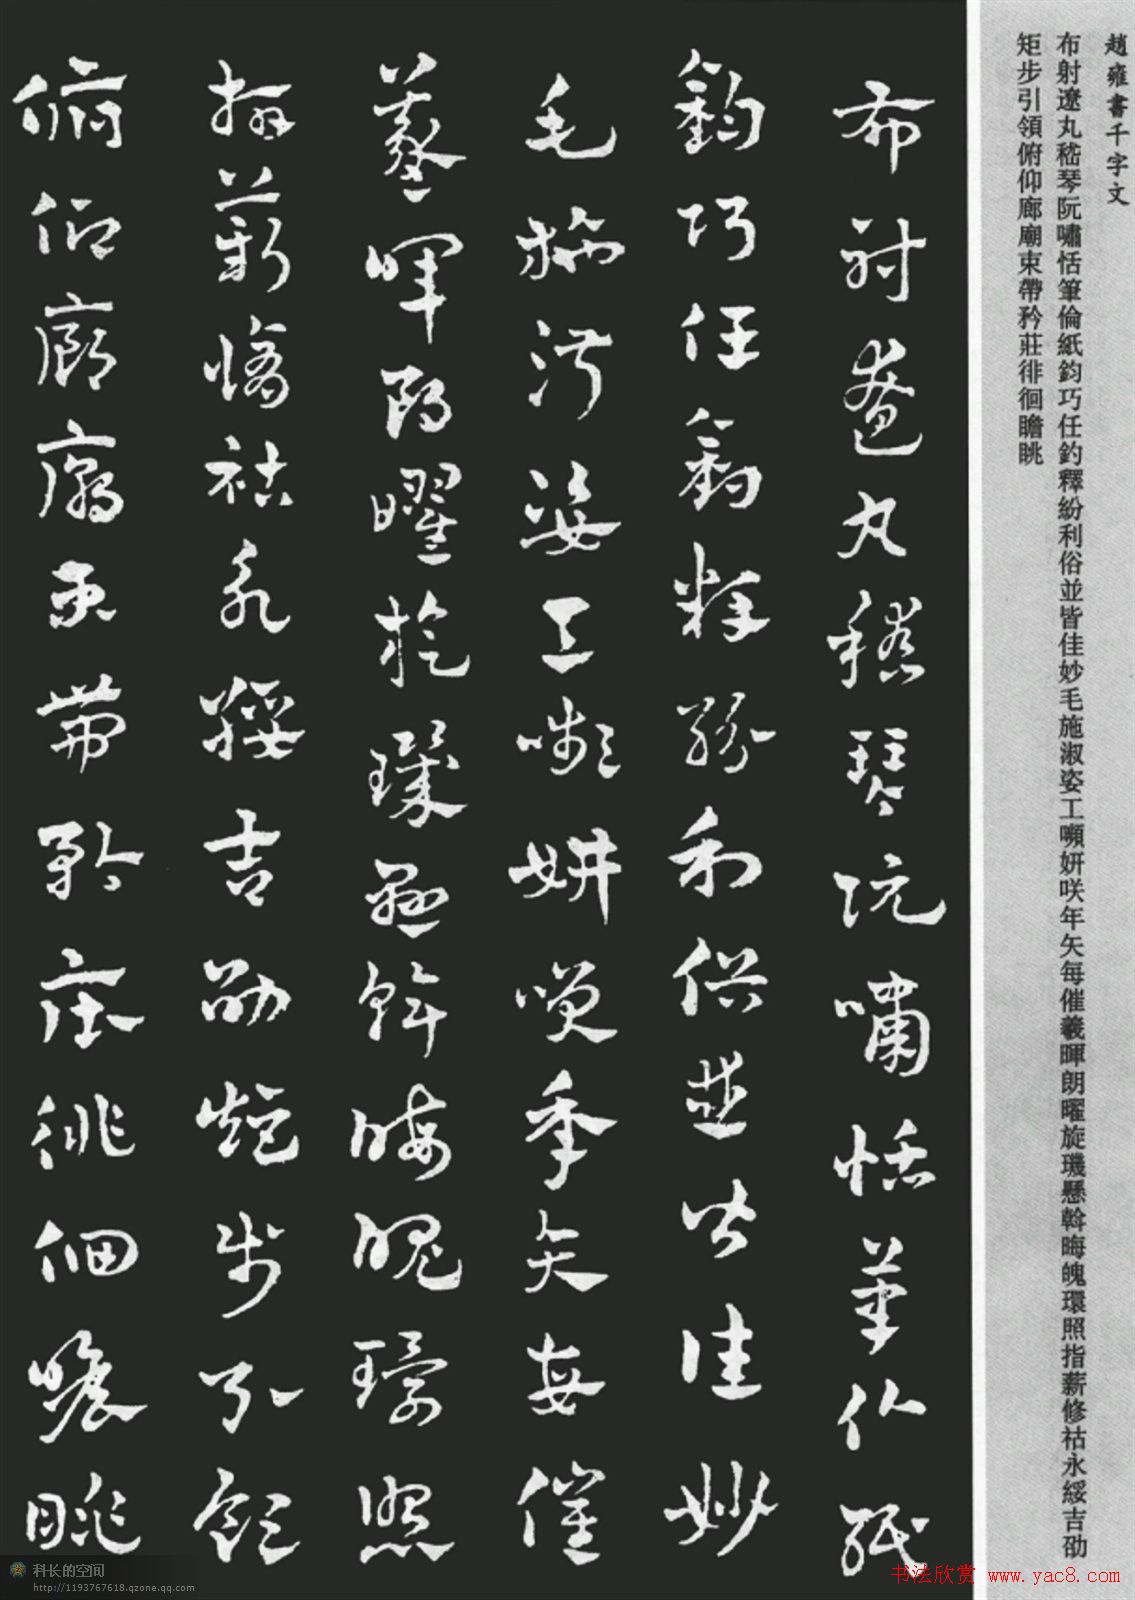 趙雍書千字文
布射遼丸嵇琴阮嘯恬筆倫紙鈞巧任釣釋紛利俗並皆佳妙毛施淑姿工嚬妍咲年矢每催羲暉朗曜旋璣懸斡晦魄環照指薪修祜永綏吉劭
矩步引領俯仰廊廟束帶矜莊徘徊瞻眺
布射遼丸嵇琴阮嘯恬筆倫紙
鈞巧任釣釋紛利俗並皆佳妙
毛施淑姿工嚬妍咲年矢每催
羲暉朗曜旋璣懸斡晦魄環照
指薪修祜永綏吉劭矩步引領
俯仰廊廟束帶矜莊徘徊瞻眺
科长的空间
http://1193767618.qzone.qq.com
书法欣赏 www.yac8.com